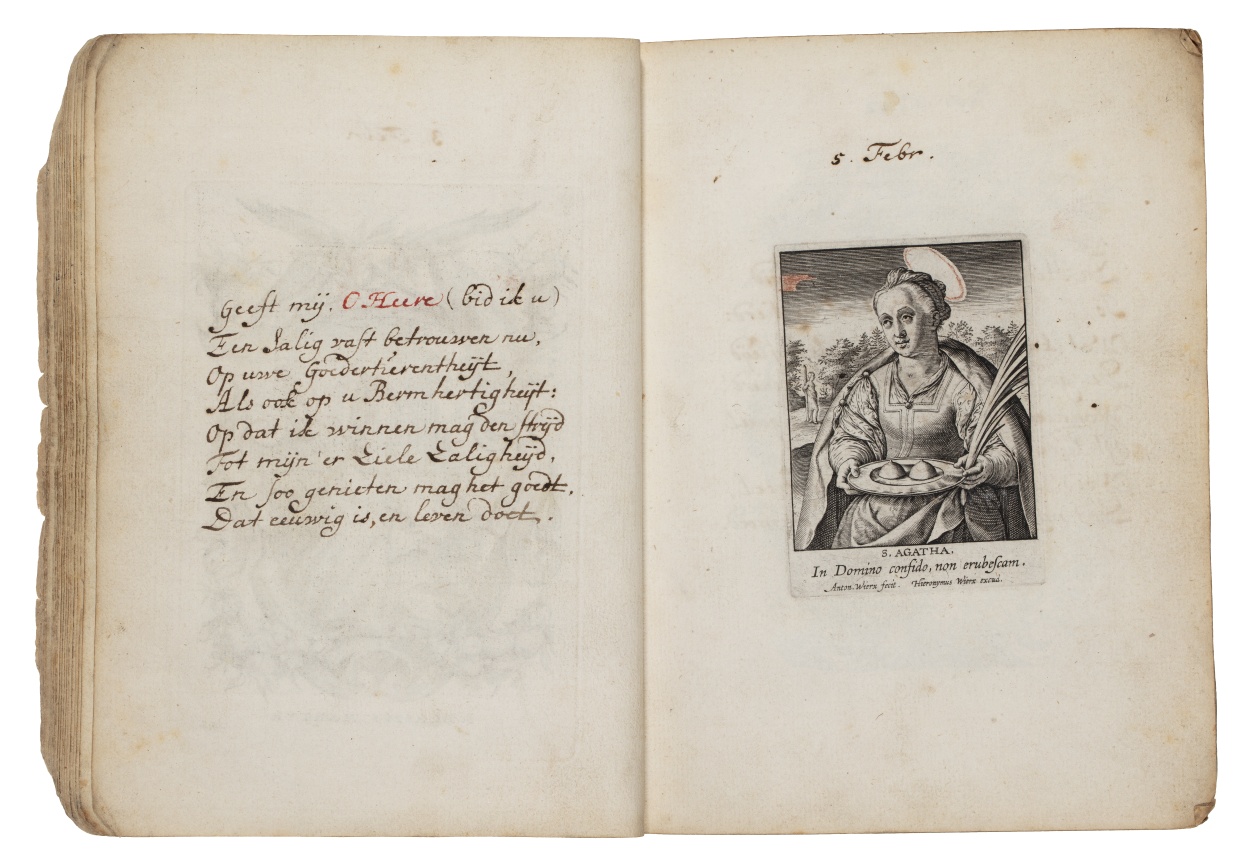 Geeft mij. O Heere (bid ik u)
Een Salig vast betrouwen nu,
Op uwe Goedertierentheijt,
Als ook op u Bermhertigheijt:
Op dat ik winnen mag den strijd
Tot mijn'er Ziele Zaligheijd,
En soo genieten mag het goedt,
Dat eeuwig is, en leven doet.
5. Febr.
S. AGATHA.
In Domino confido, non erubeſcam.
Anton. Wierx fecit. Hieronymus Wierx excud.